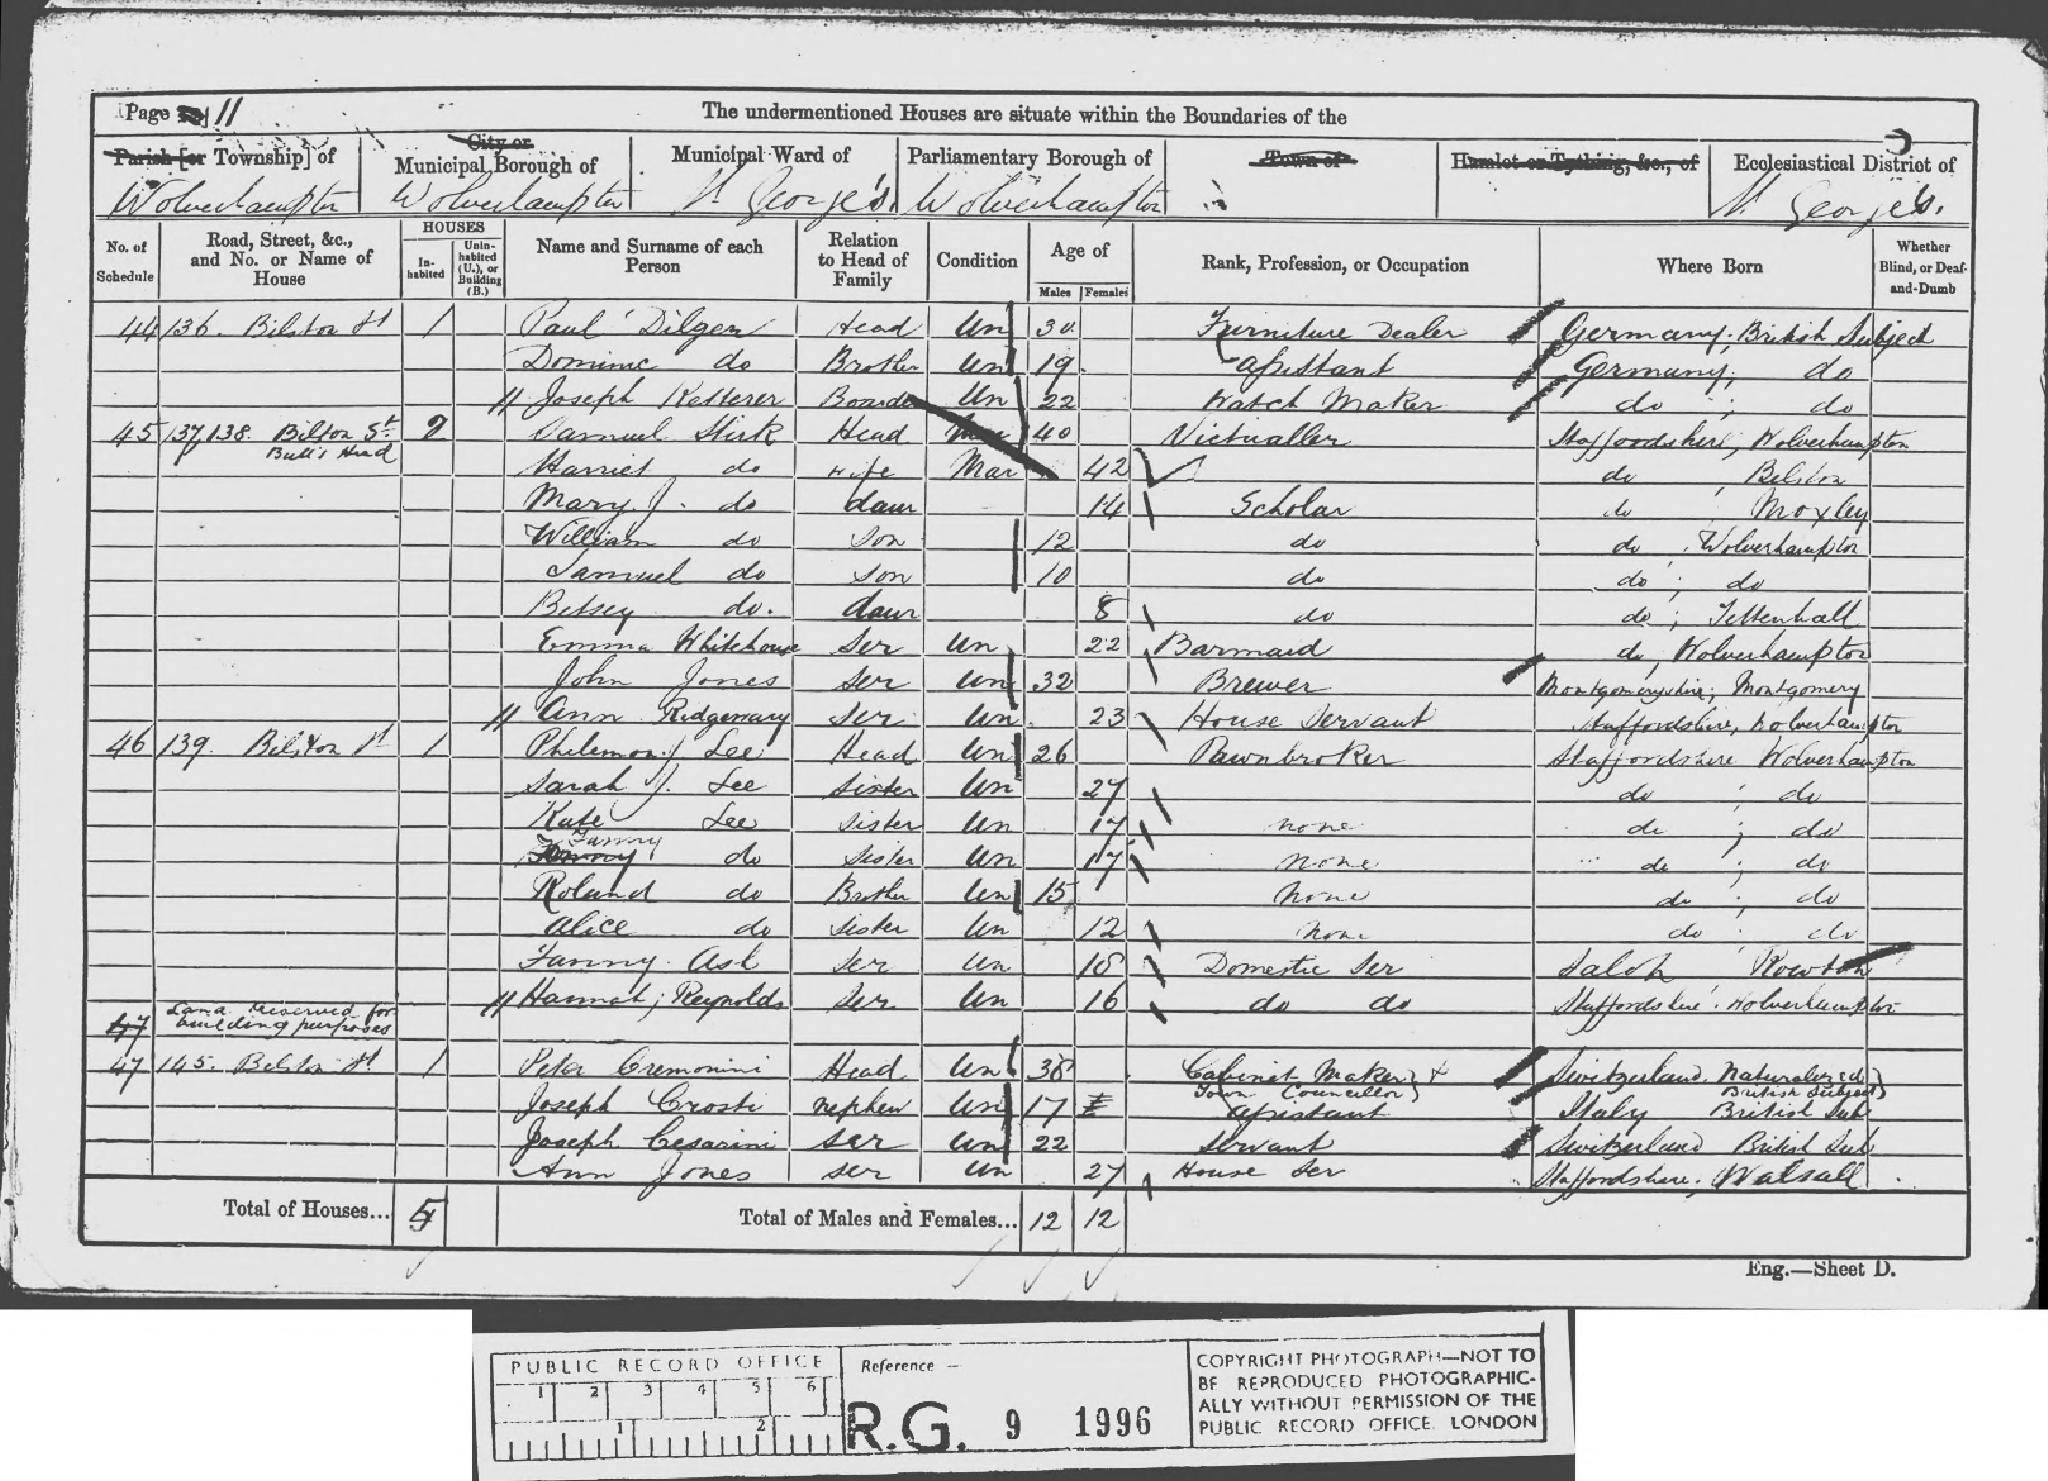 Page 11 The undermentioned Houses are situate within the Boundaries of the
Parish [or Township] of City or Municipal Borough of Municipal Ward of Parliamentary Borough of Town of Hamlet or Tything, &c., of Ecclesiastical District of
Wolverhampton Wolverhampton St George's Wolverhampton St George's.
No. of Schedule Road, Street, &c., and No. or Name of House HOUSES Inhabited Uninhabited (U.), or Building (B.) Name and Surname of each Person Relation to Head of Family Condition Age of Males Females Rank, Profession, or Occupation Where Born Whether Blind, or Deaf-and-Dumb
44 136. Bilston St 1 Paul Dilger Head Un 30 Furniture Dealer Germany; British Subject
Dominic do Brother Un 19 Assistant Germany; do
Joseph Ketterer Boarder Un 22 Watch Maker do ; do
45 137,138. Bilston St. 2 Samuel Stirk Head Mar 40 Victualler Staffordshire, Wolverhampton
Bull's Head
Harriet do wife Mar 42 do Bilston
Mary J. do daur 14 Scholar do Moxley
William do Son 12 do do Wolverhampton
Samuel do Son 10 do do ; do
Betsey do. daur 8 do do ; Tettenhall
Emma Whitehouse Ser Un 22 Barmaid do, Wolverhampton
John Jones Ser Un 32 Brewer Montgomeryshire; Montgomery
Ann Ridgeway Ser Un 23 House Servant Staffordshire, Wolverhampton
46 139. Bilston St 1 Philemon J Lee Head Un 26 Pawnbroker Staffordshire Wolverhampton
Sarah J. Lee Sister Un 27 do ; do
Kate Lee Sister Un 17 none do ; do
Fanny do Sister Un 17 none do ; do
Roland do Brother Un 15 None do ; do
Alice do Sister Un 12 None do do
Fanny Ash Ser Un 18 Domestic Ser Saloh Rowton
Hannah Reynolds Ser Un 16 do do Staffordshire Wolverhampton
47 Land reserved for building purposes
47 145. Bilston St 1 Peter Cremonini Head Un 38 Cabinet Maker & Town Councillor Switzerland Naturalized British Subject
Joseph Crosti nephew Un 17 Assistant Italy British Sub
Joseph Cesarini Ser Un 22 Servant Switzerland British Sub
Ann Jones Ser Un 27 House Ser Staffordshire, Walsall
Total of Houses... 5 Total of Males and Females... 12 12
Eng.—Sheet D.
PUBLIC RECORD OFFICE
1 2 3 4 5 6
1 2
Reference —
R.G. 9 1996
COPYRIGHT PHOTOGRAPH—NOT TO
BE REPRODUCED PHOTOGRAPHIC-
ALLY WITHOUT PERMISSION OF THE
PUBLIC RECORD OFFICE, LONDON